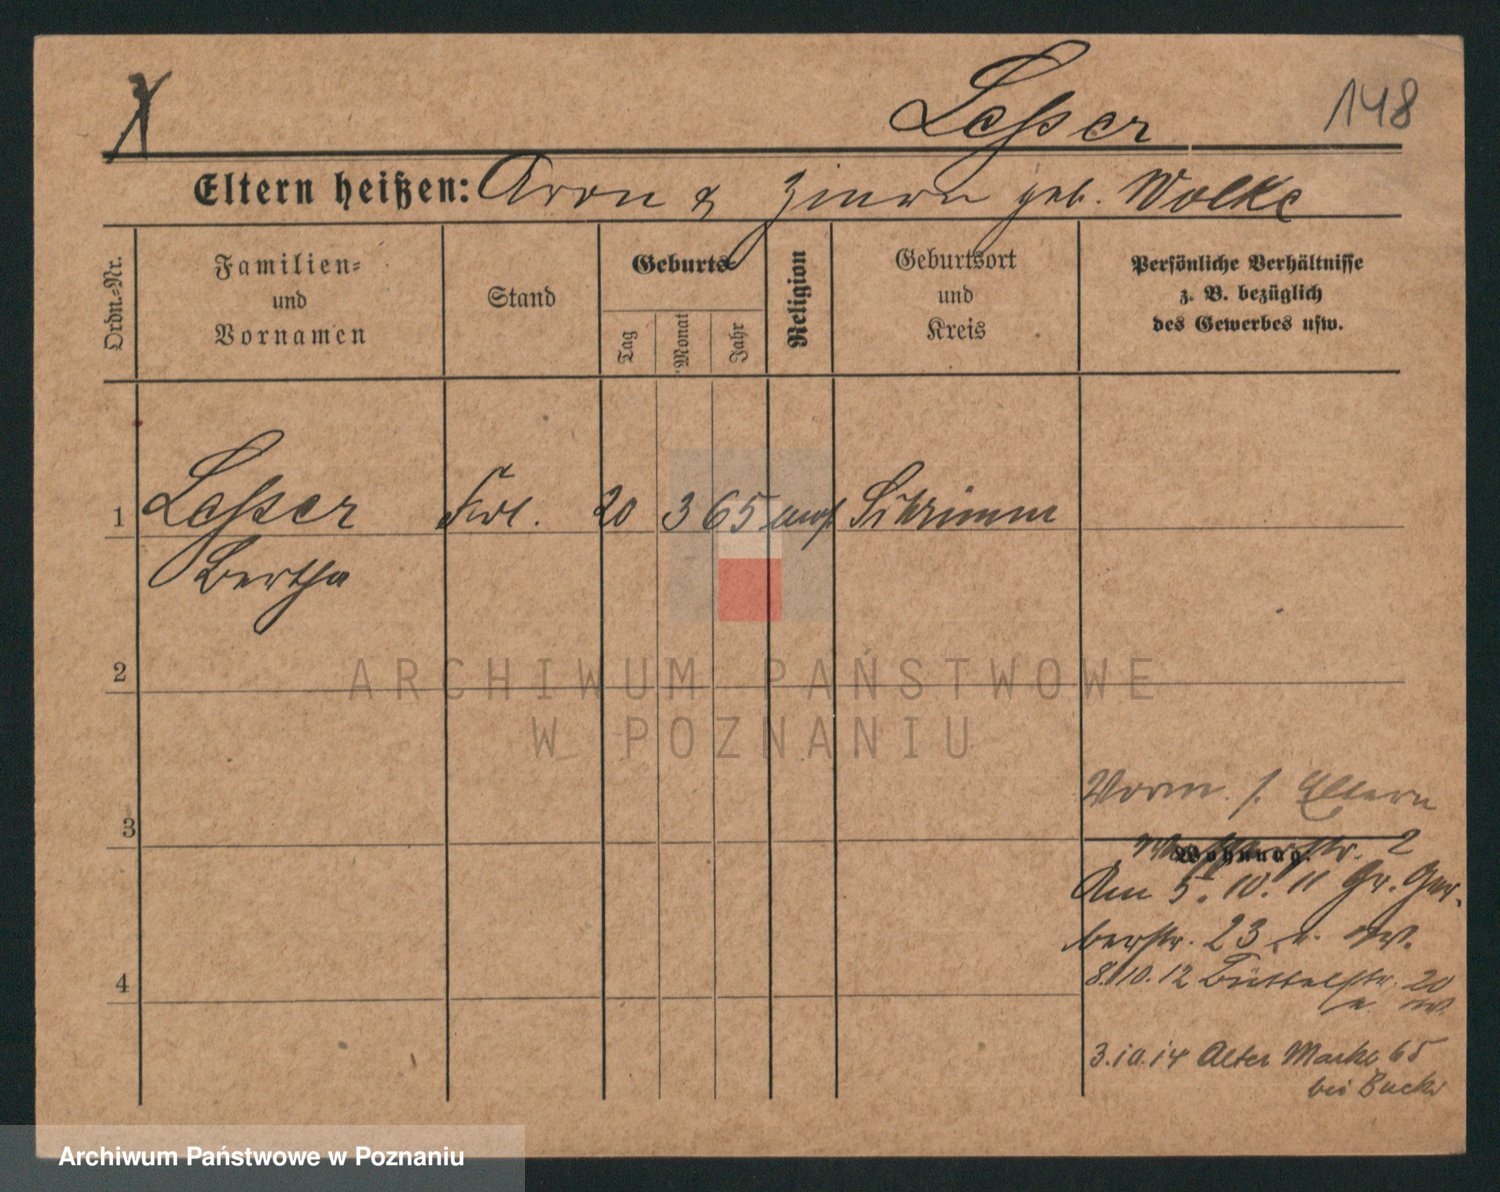 Lesser
148
Eltern heißen: Aron & geb. Wolke
Ordn.-Nr.
Familien-
und
Vornamen
Stand
Geburts-
Tag
Monat
Jahr
Religion
Geburtsort
und
Kreis
Persönliche Verhältnisse
z. B. bezüglich
des Gewerbes usw.
1 Lesser Frl. 20 3 65 mos Schrimm
Bertha
2
3
4
Vorm. s. Eltern
Wohnung.
2
Am 5. 10. 11 Gr. Ger-
berstr. 23
8.10.12 Büttelstr. 20
3.10.14 Alter Markt 65
bei
ARCHIWUM PAŃSTWOWE
W POZNANIU
Archiwum Państwowe w Poznaniu